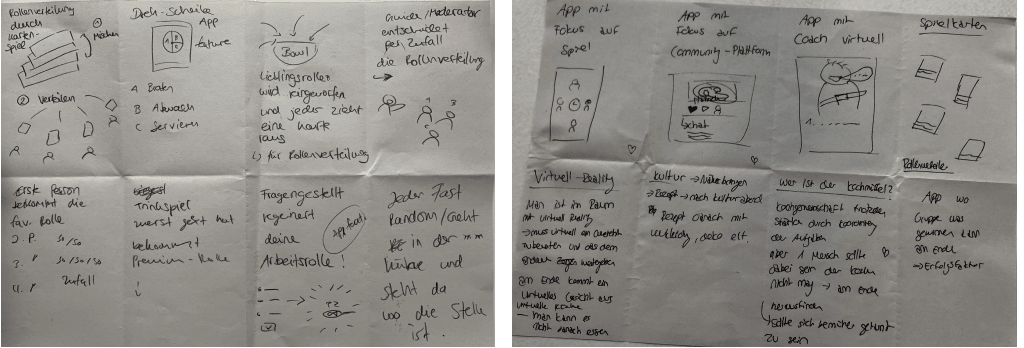 Rollenverteilung
durch
Karten-
spiel
① Mischen
② Verteilen
Dreh-Scheibe
App
feature
A B
C
A Braten
B Abwaschen
C Servieren
Bowl
Lieblingsrollen
wird reingeworfen
und jeder zieht
eine Karte
raus
↳ für Rollenverteilung
Gründer/Moderator
entscheidet
per Zufall
die Rollenverteilung
→
1
2
3
Erste Person
bekommt die
fav. Rolle
2. P. 50/50
3. " 50/50/50
4. P Zufall
Trinkspiel
zuerst
bekommt
Premium-Rolle
Fragengestellt
deine
Arbeitsrolle!
App based
Jeder Fast
Random/Geht
in der
Küche und
steht da
wo die Stelle
ist.
App mit
Fokus auf
Spiel
App mit
Fokus auf
Community-Plattform
Chat
App mit
Coach virtuell
1.
Spielkarten
Virtuell-Reality
Man ist im Raum
mit virtual Reality
→ muss virtuell ein Gericht
zubereiten und das dem
anderen weitergeben
am Ende kommt ein
virtuelles Gericht aus
virtuelle Küche
— man kann es
nicht danach essen
Kultur → Näherbringen
→ Rezept → nach Kultur
Rezept danach mit
Kleidung, deko etc.
Wer ist der Kochmuffel?
Kochgemeinschaft
stärken durch
der Aufgaben
aber 1 Mensch sollte
dabei sein der kochen
nicht mag → am Ende
herausfinden
↳ sollte sich bemüht
zu sein
App wo
Gruppe was
gewinnen kann
am Ende
→ Erfolgsfaktor